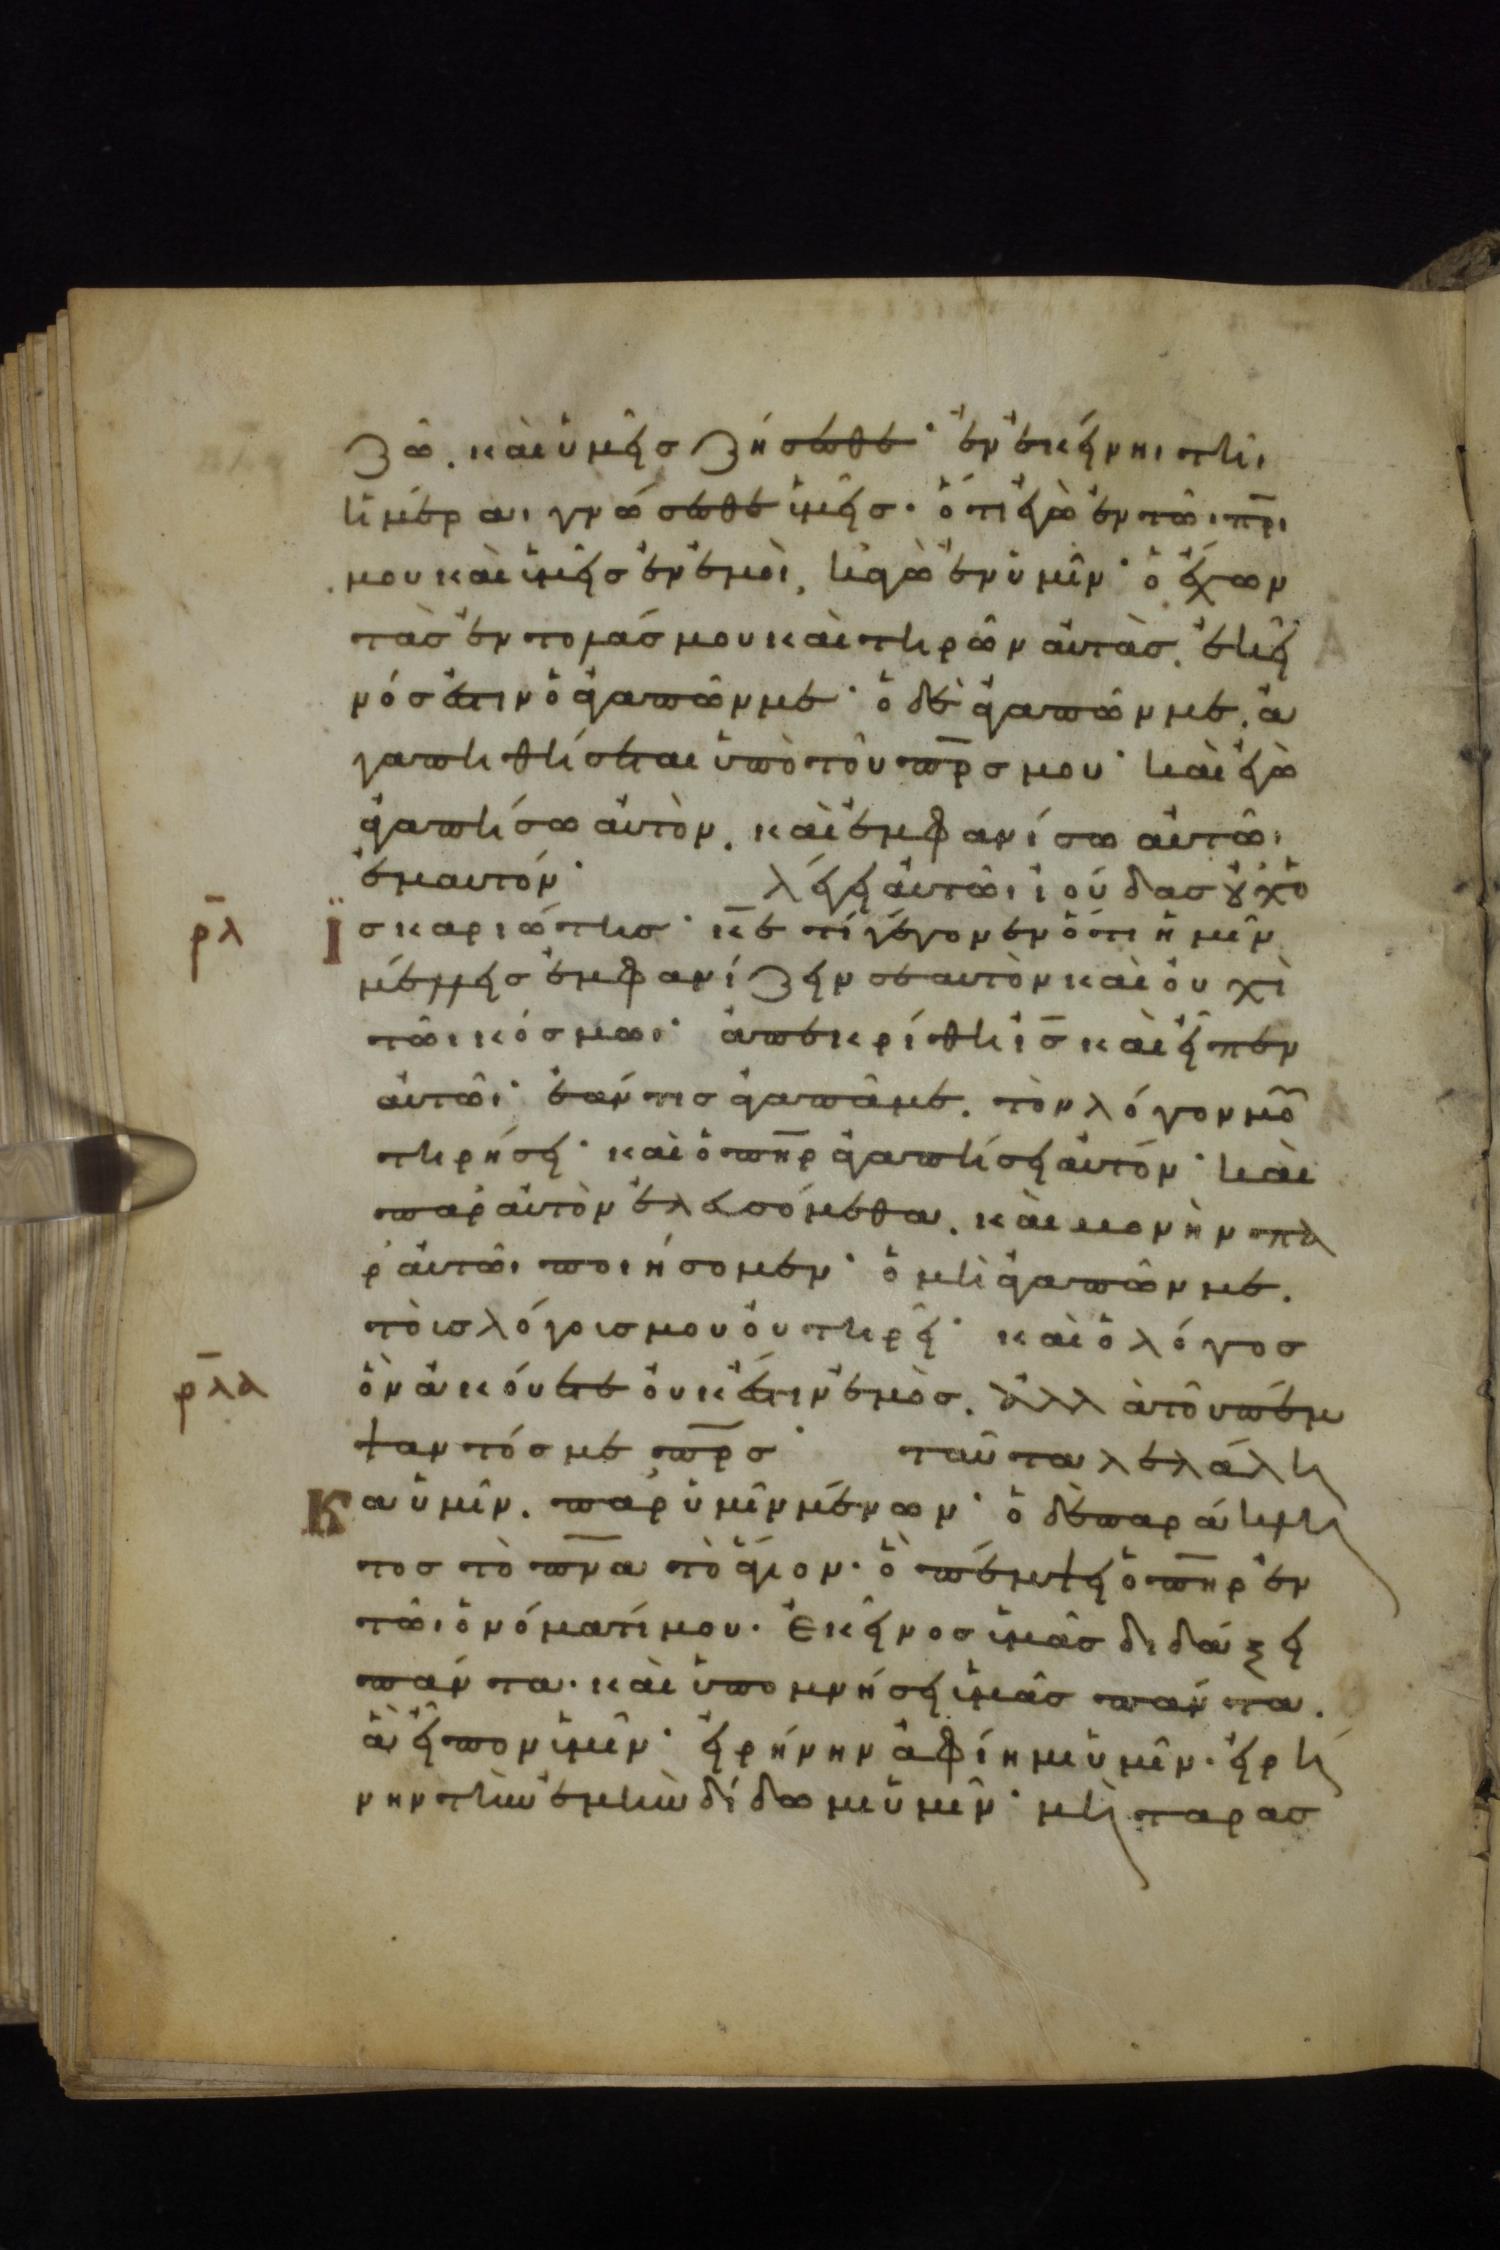 ζῶ. καὶ ὑμεῖς ζήσεσθε· ἐν ἐκείνηι τῆι
ἡμέραι γνώσεσθε ὑμεῖς· ὅτι ἐγὼ ἐν τῶι πρι
μου καὶ ὑμεῖς ἐν ἐμοὶ, κἀγὼ ἐν ὑμῖν· ὁ ἔχων
τὰς ἐντολάς μου καὶ τηρῶν αὐτὰς. ἐκεῖ
νός ἐστιν ὁ ἀγαπῶν με· ὁ δὲ ἀγαπῶν με. ἀ
γαπηθήσεται ὑπὸ τοῦ πρς μου· καὶ ἐγὼ
ἀγαπήσω αὐτὸν. καὶ ἐμφανίσω αὐτῶι
ἐμαυτόν· λέγει αὐτῶι ἰούδας οὐχ ὁ
ρλ ϊσκαριώτης· κε τί γέγονεν ὅτι ἡμῖν
μέλλεις ἐμφανίζειν σεαυτὸν καὶ οὐχὶ
τῶι κόσμωι· ἀπεκρίθη ις καὶ εἶπεν
αὐτῶι· ἐάν τις ἀγαπᾶ με. τὸν λόγον μου
τηρήσει· καὶ ὁ πηρ ἀγαπήσει αὐτόν· καὶ
παρ' αὐτὸν ἐλευσόμεθα. καὶ μονὴν πα
ρ' αὐτῶι ποιήσομεν· ὁ μὴ ἀγαπῶν με.
τοὺς λόγους μου οὐ τηρεῖ· καὶ ὁ λόγος
ρλα ὃν ἀκούετε οὐκ ἔστιν ἐμὸς. ἀλλὰ τοῦ πέμ
ψαντός με πρς· ταῦτα λελάλη
Κα ὑμῖν. παρ' ὑμῖν μένων· ὁ δὲ παράκλη
τος τὸ πνα τὸ ἅγιον· ὃ πέμψει ὁ πηρ ἐν
τῶι ὀνόματί μου· ἐκεῖνος ὑμᾶς διδάξει
πάντα· καὶ ὑπομνήσει ὑμᾶς πάντα.
ἃ εἶπον ὑμῖν· εἰρήνην ἀφίημι ὑμῖν· εἰρή
νην τὴν ἐμὴν δίδωμι ὑμῖν· μὴ ταρασ